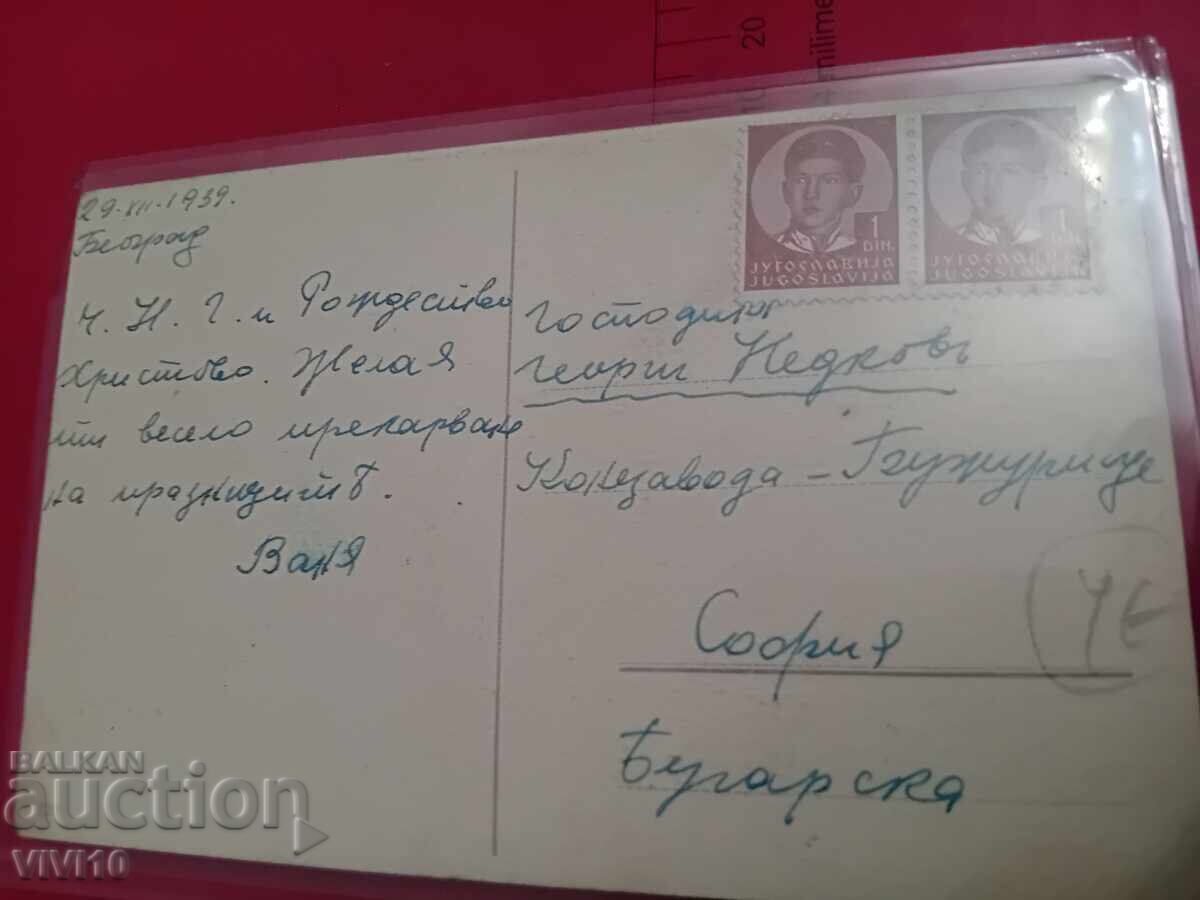 20
milime
29.XII.1939.
Београд
Ч. Н. Г. и Рождество
Христово. Желая
ти весело прекарване
на празницитѣ.
Ваня
1
DIN.
ЈУГОСЛАВИЈА
JUGOSLAVIJA
1
DIN.
ЈУГОСЛАВИЈА
JUGOSLAVIJA
Господинъ
Георги Недковъ
Конезавода - Бужурище
София
Бугарска
ЧЕ
BALKAN
auction
VIVI10